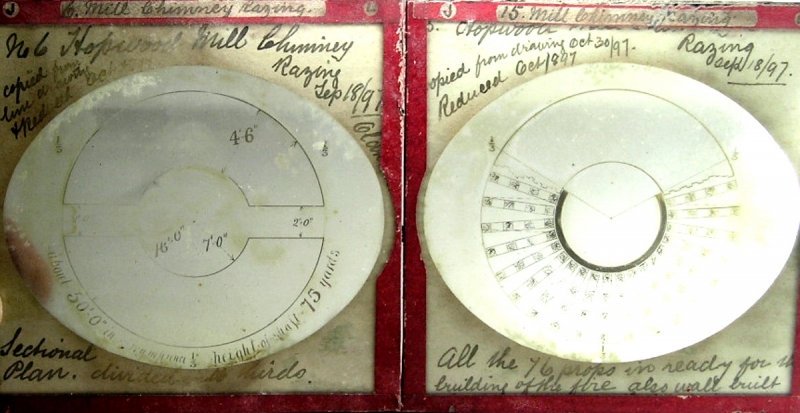 6. Mill Chimney Razing.
No 6 Hopwood Mill Chimney
Razing
Sep 18/97
copied from
1/3
1/3
4'.6"
2'.0"
16'.0"
7'.0"
about 50'.0" in
1/3
height of shaft 75 yards
Sectional
Plan. divided into thirds.
15. Mill Chimney Razing
Hopwood
Razing
Sept 18/97.
copied from drawing Oct 30/97.
Reduced Oct 1897
1/3
1/3
All the 76 props in ready for
building of the fire also wall built